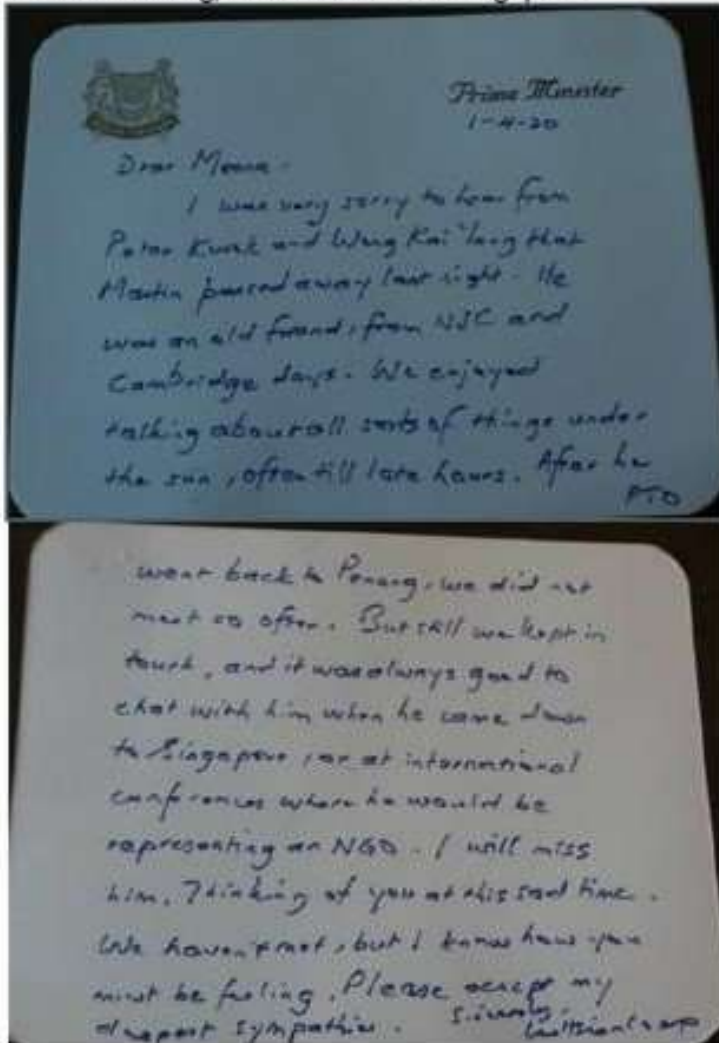 Prime Minister
1-4-20
Dear Meena.
I was very sorry to hear from
Peter Kwok and Wong Kai Yang that
Martin passed away last night. He
was an old friend, from NJC and
Cambridge days. We enjoyed
talking about all sorts of things under
the sun, often till late hours. After he
PTO
went back to Penang, we did not
meet so often. But still we kept in
touch, and it was always good to
chat with him when he came down
to Singapore, or at international
conferences where he would be
representing an NGO. I will miss
him. Thinking of you at this sad time.
We haven't met, but I know how you
must be feeling. Please accept my
deepest sympathies. Sincerely,